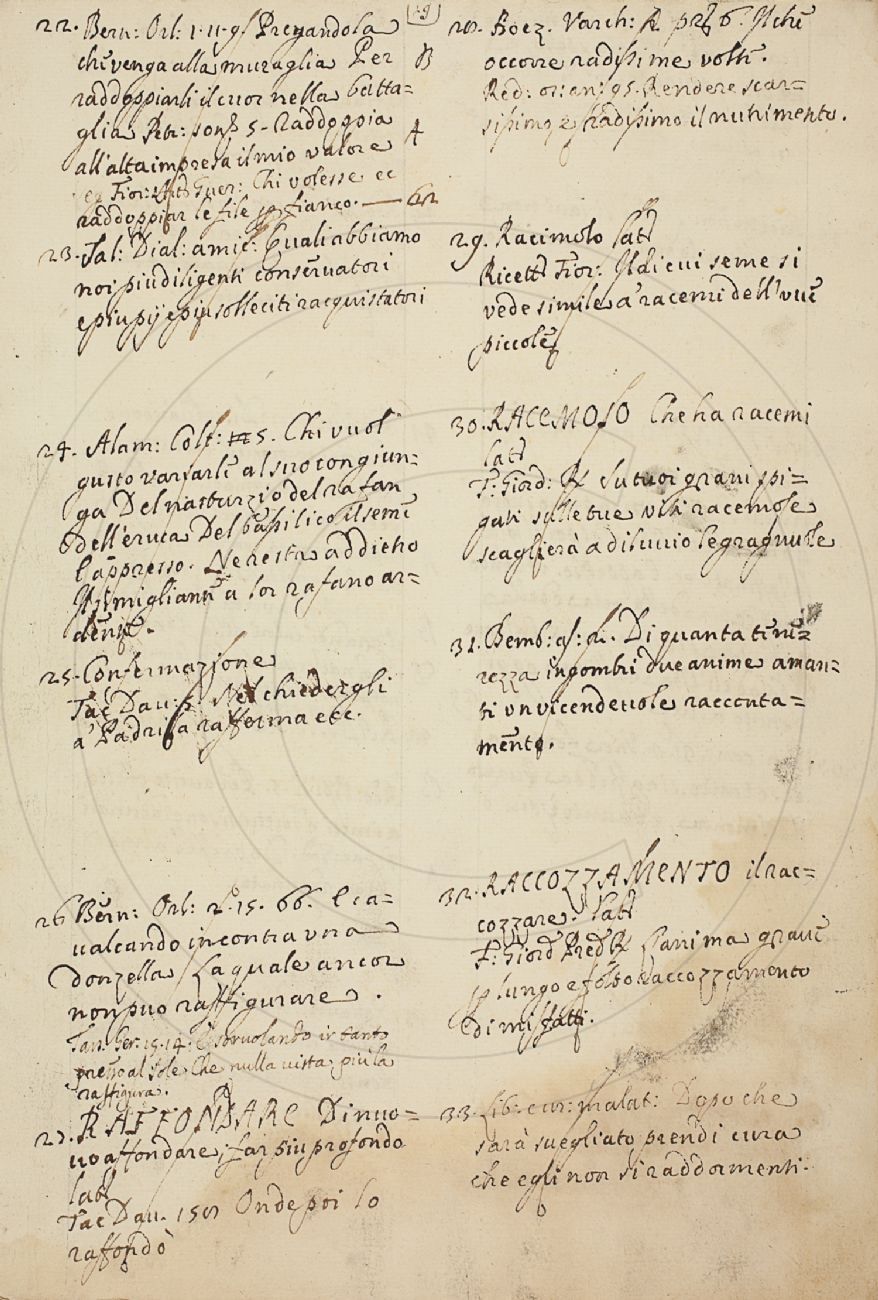 22. Bern: Orl: 1. 11. 9/ Pregandola
che venga alla muraglia Per B
raddoppiarli il cuor nella batta=
glia Petr: son: 5. Raddoppia
all'alta impresa il mio valore A
Fior: Guer: Chi volesse ec
raddoppiar le file p fianco.
23. Sal: Dial: amic: Quali abbiamo
noi piu diligenti conseruatori
e piu pij e piu solleciti racquistatori
24. Alam: Colt: 5. Chi vuol
gusto variarle al suo congiun=
ga Del nasturzio del rafan
dell'eruca Del basilico il seme
l'appresso. Ne resta addietro
Il simigliante a lor rafano ar=
dente.
25. Confermazione
Tac Dau: Nel chiedergli
a' Padri la rafferma etc.
26 Bern: Orl: 2. 15. 66. E ca=
ualcando incontra una
donzella La quale ancor
non puo raffigurare.
Tass. Ger: 15. 14: Soruolando ir tanto
presso al sole Che nulla vista piu la
raffigura.
27. RAFFONDARE Di nuo=
uo affondare, far piu profondo
lat
Tac Dau. Onde poi lo
raffondò
28. Boez. Varch: R prz 6. Il che
occorre radissime volte.
Red: os: an: 95. Rendere scar=
sissimo e radissimo il nutrimento.
29. Racimolo lat
Ricett Fior: Il di cui seme si
vede simile a' racemi dell'uue
piccole
30. RACEMOSO Che ha racemi
lat
F. Giord: R Su tuoi grani spi=
gati sulle tue viti racemose
scaglierà a diluuio le gragnuole
31. Bemb: as: li. Di quanta tene=
rezza ingombri due anime aman=
ti vn vicendeuole racconta=
mento.
32. RACCOZZAMENTO il rac=
cozzare. lat
F. Giord Pred R L'anima graue
p lungo e folto raccozzamento
di misfatti.
33. Lib: cur: malat: Dopo che
sarà suegliato prendi cura
che egli non si raddormenti.